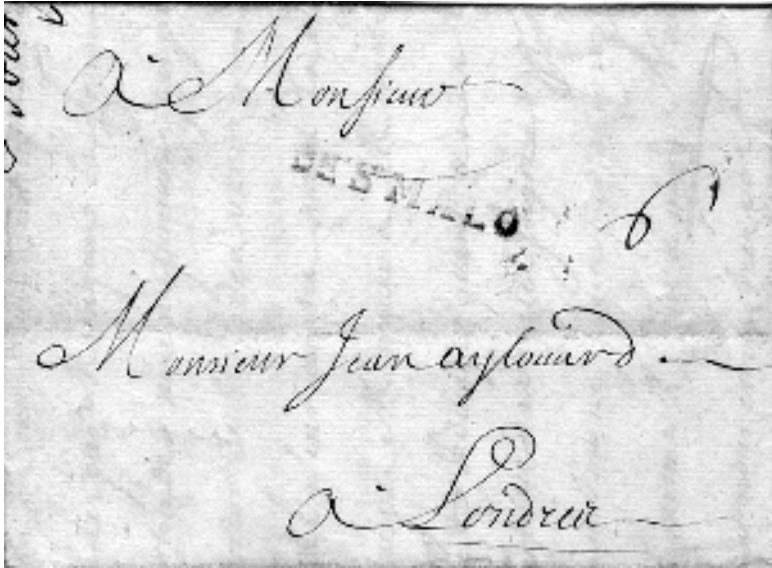 à Monsieur
DE S MALO
6
Monsieur Jean aylouard
à Londres